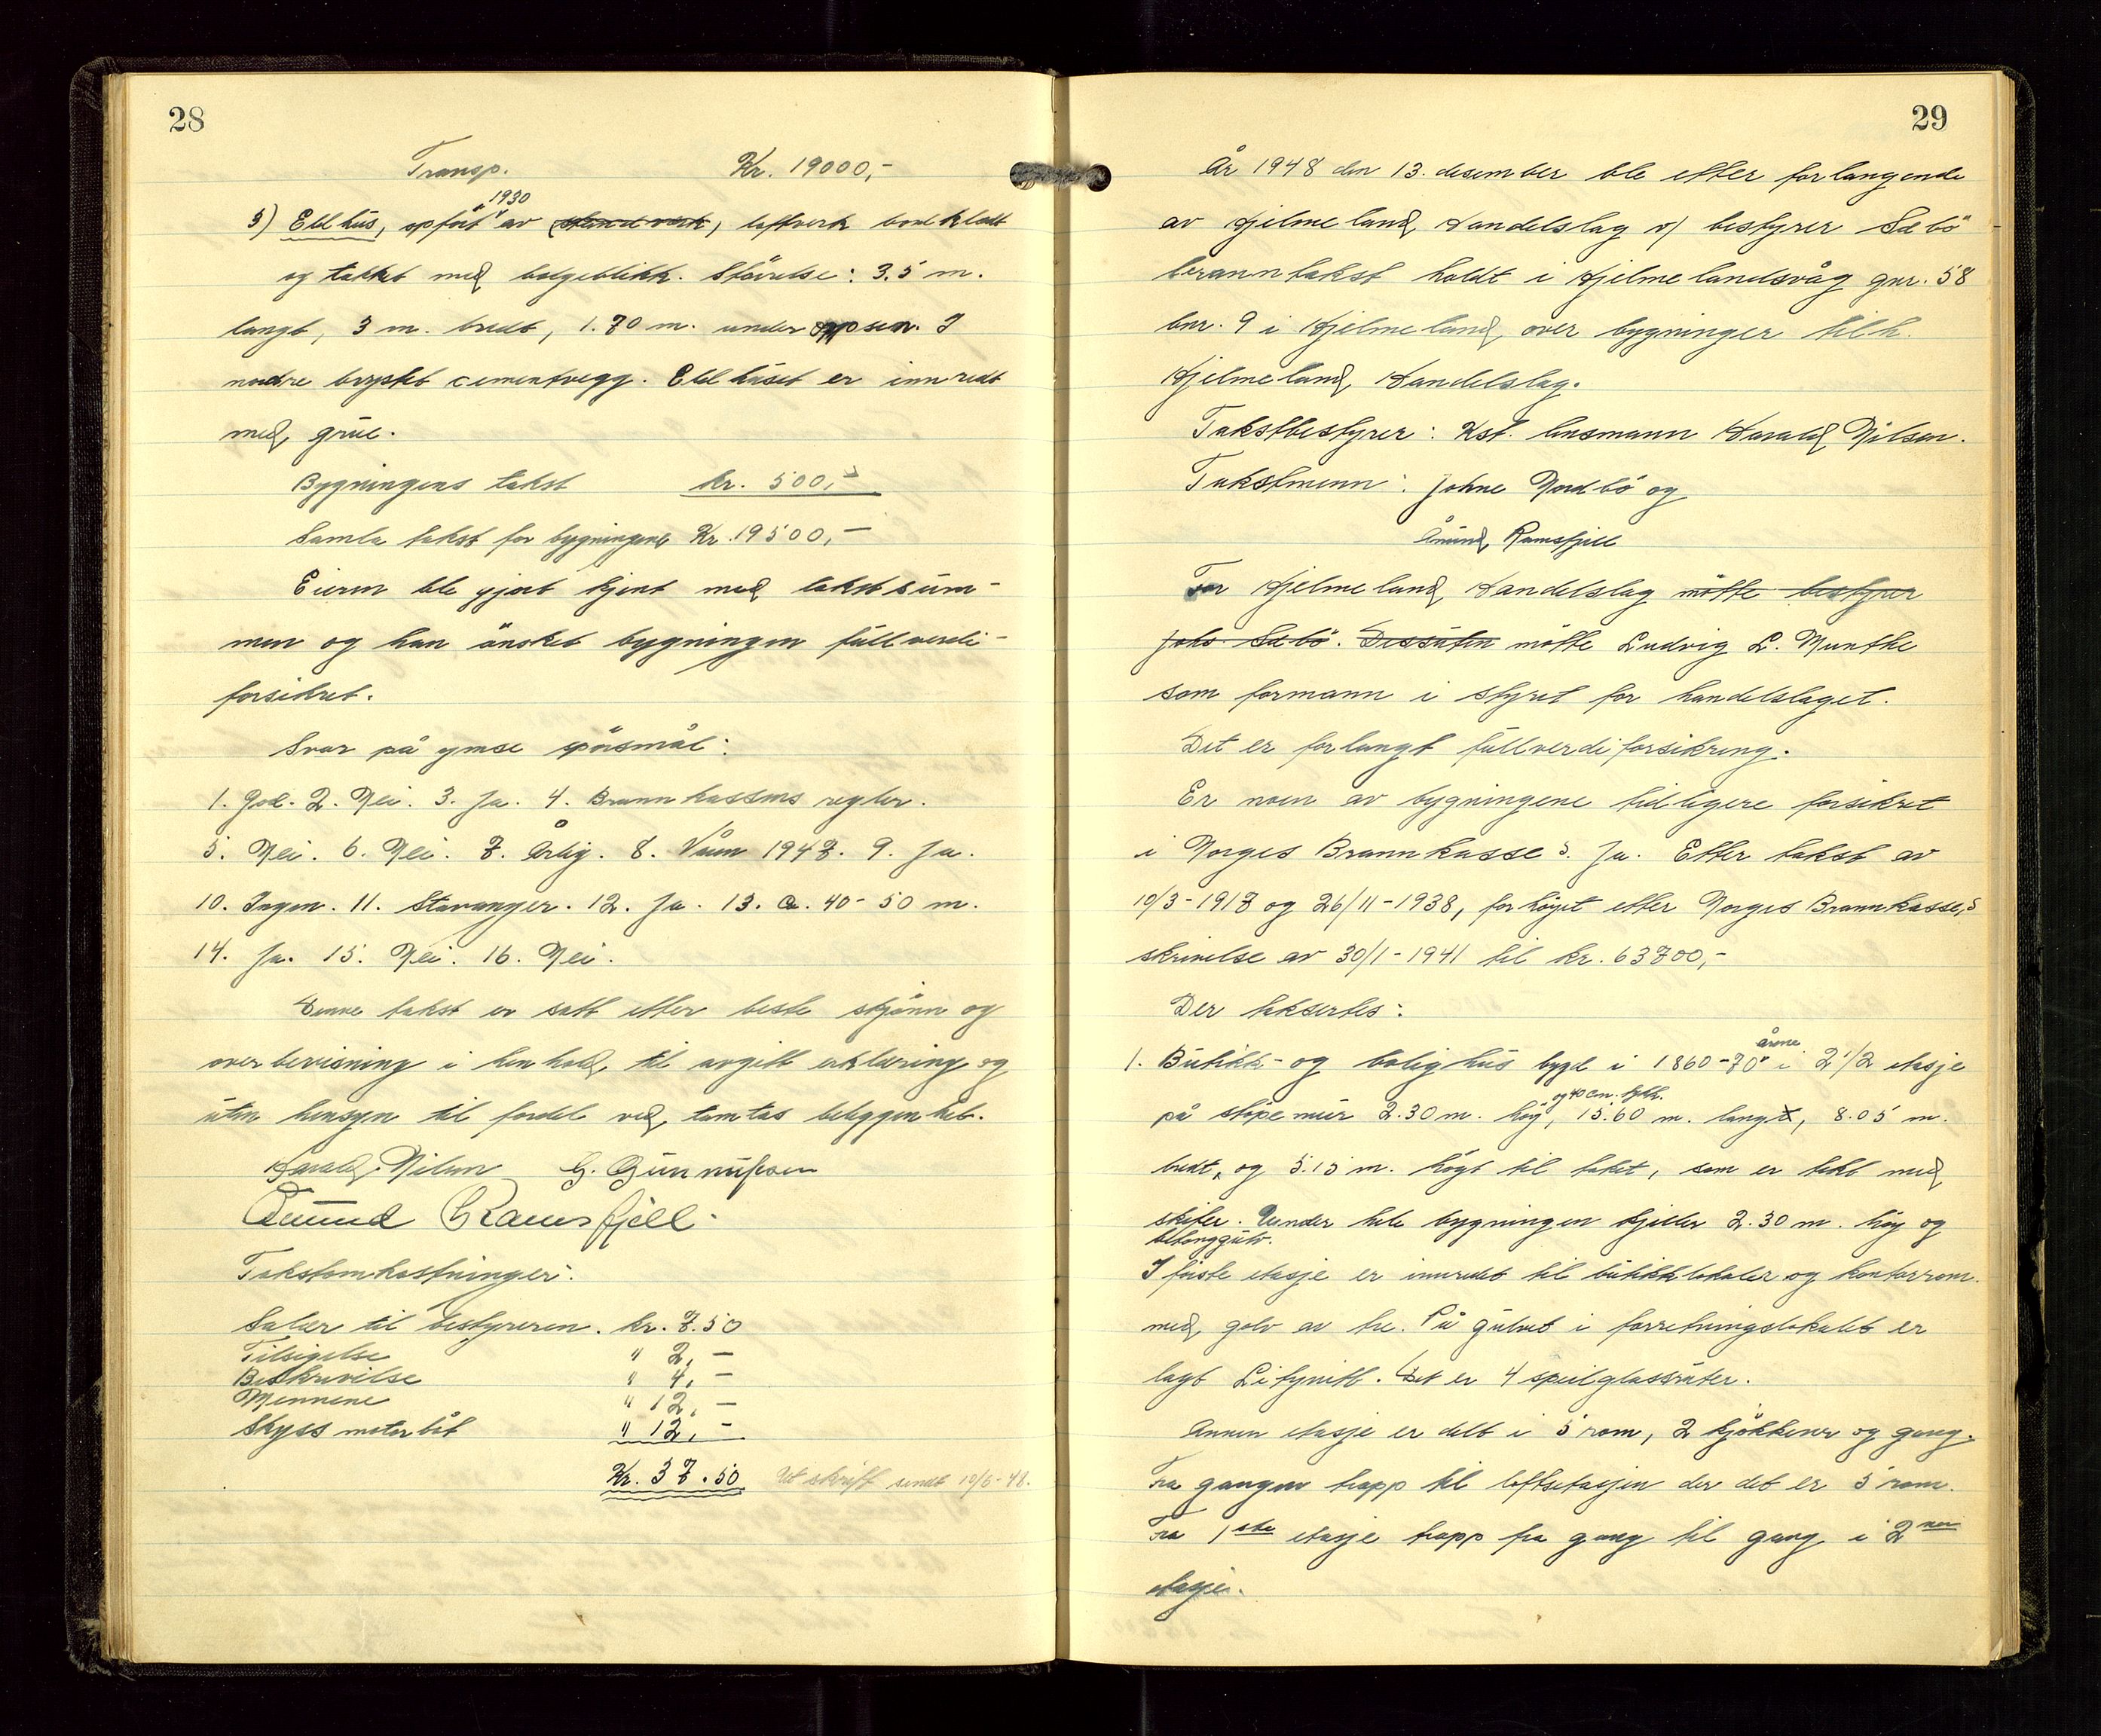 28
Transp. Kr. 19000,-
1930
5) Eldhus, opført av standverk, loftverk bordkledt
og tekket med bølgeblikk. Størrelse: 3.5 m.
langt, 3 m. bredt, 1.70 m. under opsen. I
nordre brystet cementvegg. Eldhuset er innredt
med grue.
Bygningens takst kr. 500,-
Samla takst for bygningene Kr. 19500,-
Eieren ble gjort kjent med takstsum-
men og han ønsket bygningen fullverdi-
forsikret.
Svar på ymse spørsmål:
1. God. 2. Nei. 3. Ja. 4. Brannkassens regler.
5. Nei. 6. Nei. 7. Årlig. 8. Våren 1947. 9. Ja.
10. Ingen. 11. Stavanger. 12. Ja. 13. Ca. 40-50 m.
14. Ja. 15. Nei. 16. Nei.
Denne takst er satt etter beste skjønn og
overbevisning i henhold til avgitt erklæring og
uten hensyn til fordel ved tomtas beliggenhet.
Harald Nilsen G. Gunnufsen
Åmund Ramsfjell.
Takstomkostninger:
Salær til bestyreren. kr. 7.50
Tilsigelse " 2,-
Beskrivelse " 4,-
Mennene " 12,-
Skyss motorbåt " 12,-
Kr. 37.50 Utskrift sendt 10/6-48.
29
År 1948 den 13. desember ble etter forlangende
av Hjelmeland Handelslag v/ bestyrer Sæbø
branntakst holdt i Hjelmelandsvåg gnr. 58
bnr. 9 i Hjelmeland over bygninger tilh.
Hjelmeland Handelslag.
Takstbestyrer: Kst. lensmann Harald Nilsen.
Takstmenn: Johne Nordbø og
Åmund Ramsfjell
For Hjelmeland Handelslag møtte bestyrer
Johs Sæbø. Dessuten møtte Ludvig L. Munthe
som formann i styret for handelslaget.
Det er forlangt fullverdiforsikring.
Er noen av bygningene tidligere forsikret
i Norges Brannkasse? Ja. Etter takst av
10/3-1917 og 26/11-1938, forhøyet etter Norges Brannkasse,s
skrivelse av 30/1-1941 til kr. 63700,-
Der taksertes:
årene
1. Butikk- og bolighus bygt i 1860-70 i 2 1/2 etasje
og 40 cm. tykk.
på støpemur 2.30 m. høy, 15.60 m. langt, 8.05 m.
bredt, og 5.15 m. høgt til taket, som er tekt med
skifer. Under hele bygningen kjeller 2.30 m. høy og
betonggulv.
I første etasje er innredet til butikklokaler og kontorrom
med golv av tre. På gulvet i forretningslokalet er
lagt Lifynitt. Det er 4 speilglassruter.
Annen etasje er delt i 5 rom, 2 kjøkkener og gang.
Fra gangen trapp til loftsetasjen der det er 5 rom.
Fra 1ste etasje trapp fra gang til gang i 2nen
etasje.